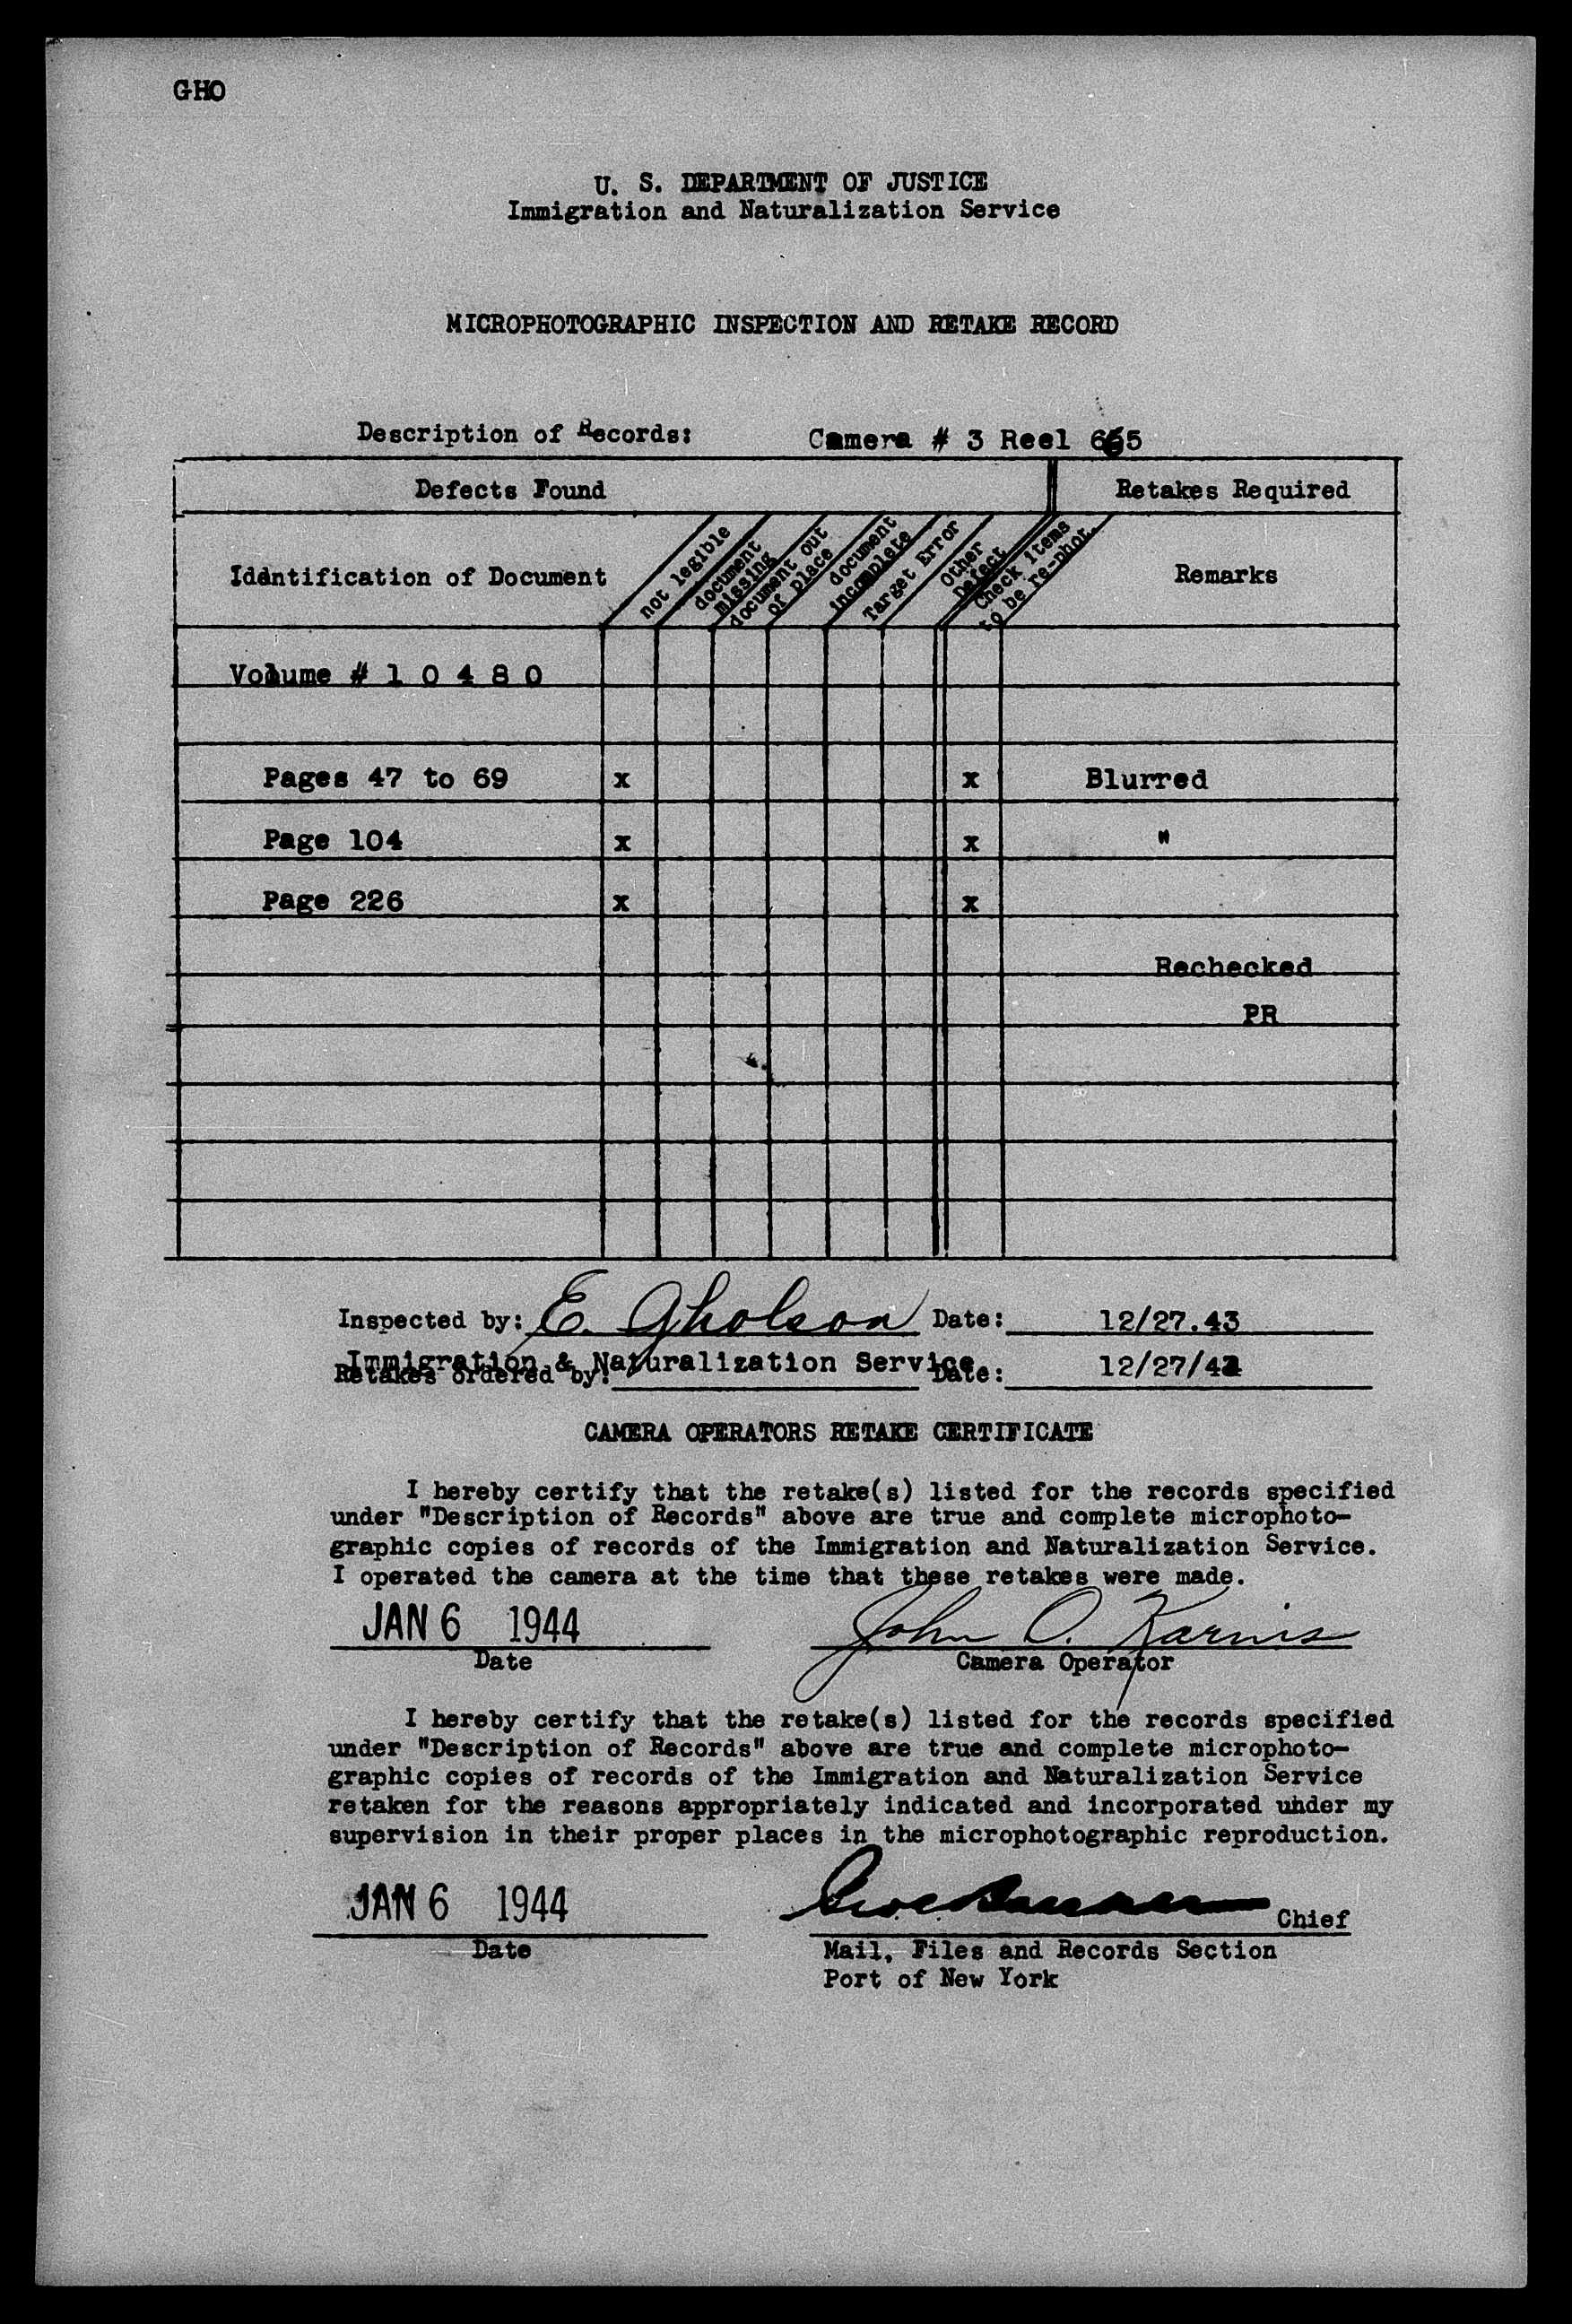 GHO
U. S. DEPARTMENT OF JUSTICE
Immigration and Naturalization Service
MICROPHOTOGRAPHIC INSPECTION AND RETAKE RECORD
Description of Records: Camera # 3 Reel 665
Defects Found Retakes Required
Identification of Document not legible document missing document out of place document incomplete Target Error Other Defect Check items to be re-phot. Remarks
Volume # 1 0 4 8 0
Pages 47 to 69 x x Blurred
Page 104 x x "
Page 226 x x
Rechecked
PR
Inspected by: E. Gholson Date: 12/27.43
Immigration & Naturalization Service
Retakes ordered by: Date: 12/27/43
CAMERA OPERATORS RETAKE CERTIFICATE
I hereby certify that the retake(s) listed for the records specified
under "Description of Records" above are true and complete microphoto-
graphic copies of records of the Immigration and Naturalization Service.
I operated the camera at the time that these retakes were made.
JAN 6 1944 John O. Karnis
Date Camera Operator
I hereby certify that the retake(s) listed for the records specified
under "Description of Records" above are true and complete microphoto-
graphic copies of records of the Immigration and Naturalization Service
retaken for the reasons appropriately indicated and incorporated under my
supervision in their proper places in the microphotographic reproduction.
JAN 6 1944 Chief
Date Mail, Files and Records Section
Port of New York